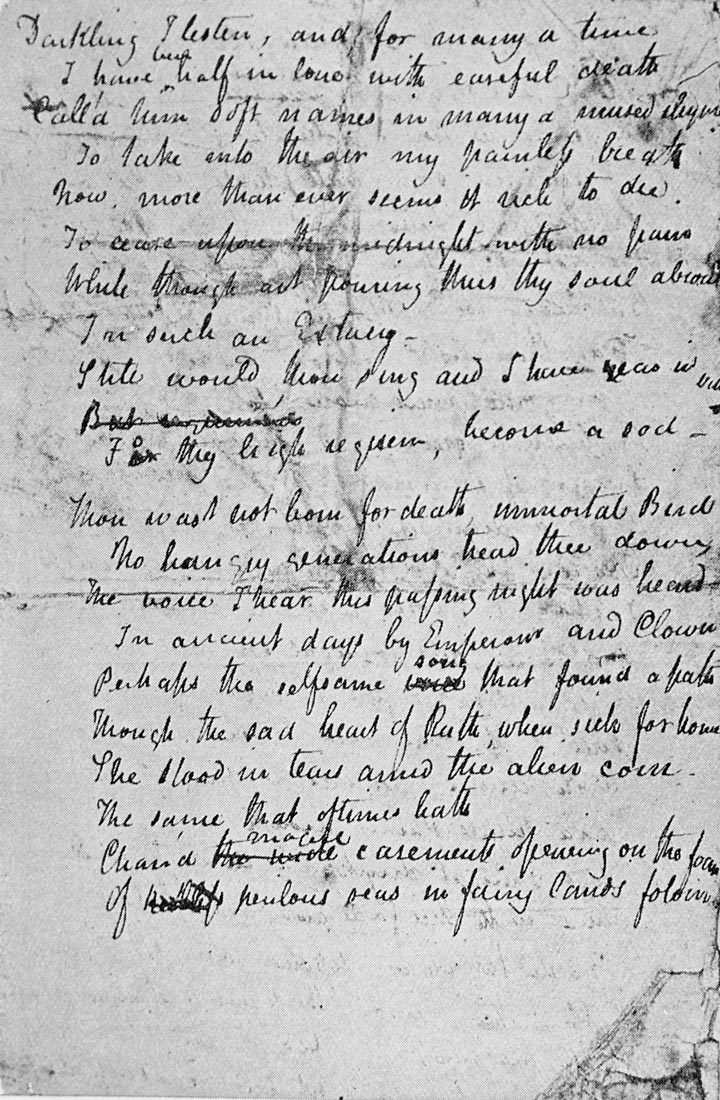 Darkling I listen, and, for many a time
I have been half in love with easeful death
Call'd him soft names in many a mused rhyme
To take into the air my painless breath
Now, more than ever seems it rich to die.
To cease upon the midnight with no pain
While though art pouring thus thy soul abroad
In such an Extacy–
Still would thou sing and I have ears in vain
But
For thy high requiem, become a sod –
Thou wast not born for death, immortal Bird
No hungry generations tread thee down,
The voice I hear this passing night was heard
In ancient days by Emperour and Clown
Perhaps the selfsame song that found a path
Though the sad heart of Ruth, when sick for home
She stood in tears amid the alien corn.
The same that oftimes hath
Charm'd the wide magic casements opening on the foam
Of perilous seas in fairy lands folorn